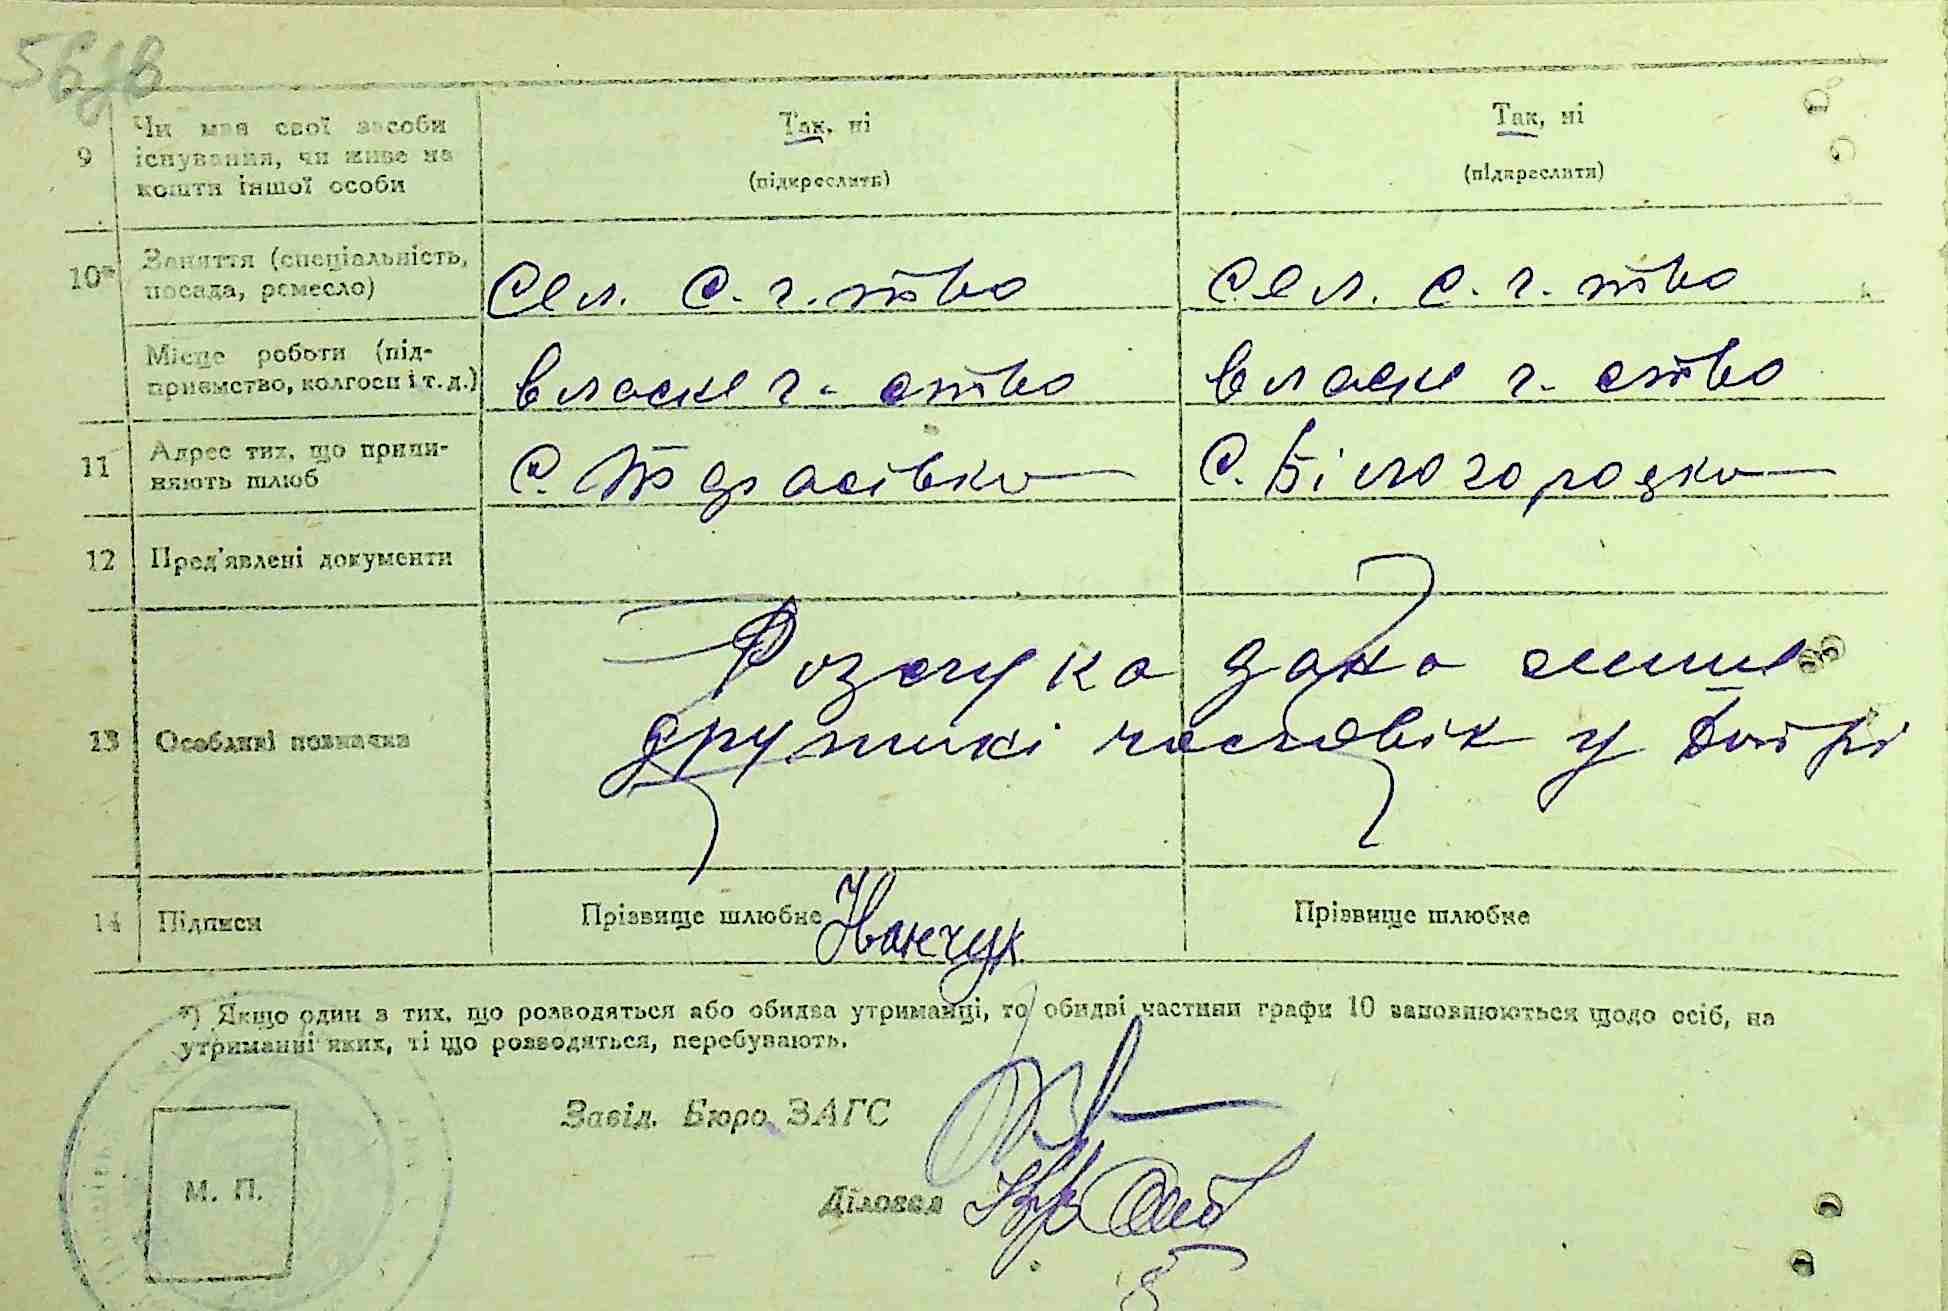 9 Чи має свої засоби існування, чи живе на кошти іншої особи
Так, ні
(підкреслити)
Так, ні
(підкреслити)
10* Заняття (спеціальність, посада, ремесло)
Сел. с. г. тво
Сел. с. г. тво
Місце роботи (підприємство, колгосп і т. д.)
власне г-ство
власне г-ство
11 Адрес тих, що припиняють шлюб
с. Тарасівка
с. Білогородка
12 Пред'явлені документи
13 Особливі позначки
Розлука дана лише
дружині чоловік у Боярі
14 Підписи
Прізвище шлюбне Іванчук
Прізвище шлюбне
*) Якщо один з тих, що розводяться або обидва утриманці, то обидві частини графи 10 заповнюються щодо осіб, на
утриманні яких, ті що розводяться, перебувають.
Завід. Бюро ЗАГС
Діловод
М. П.